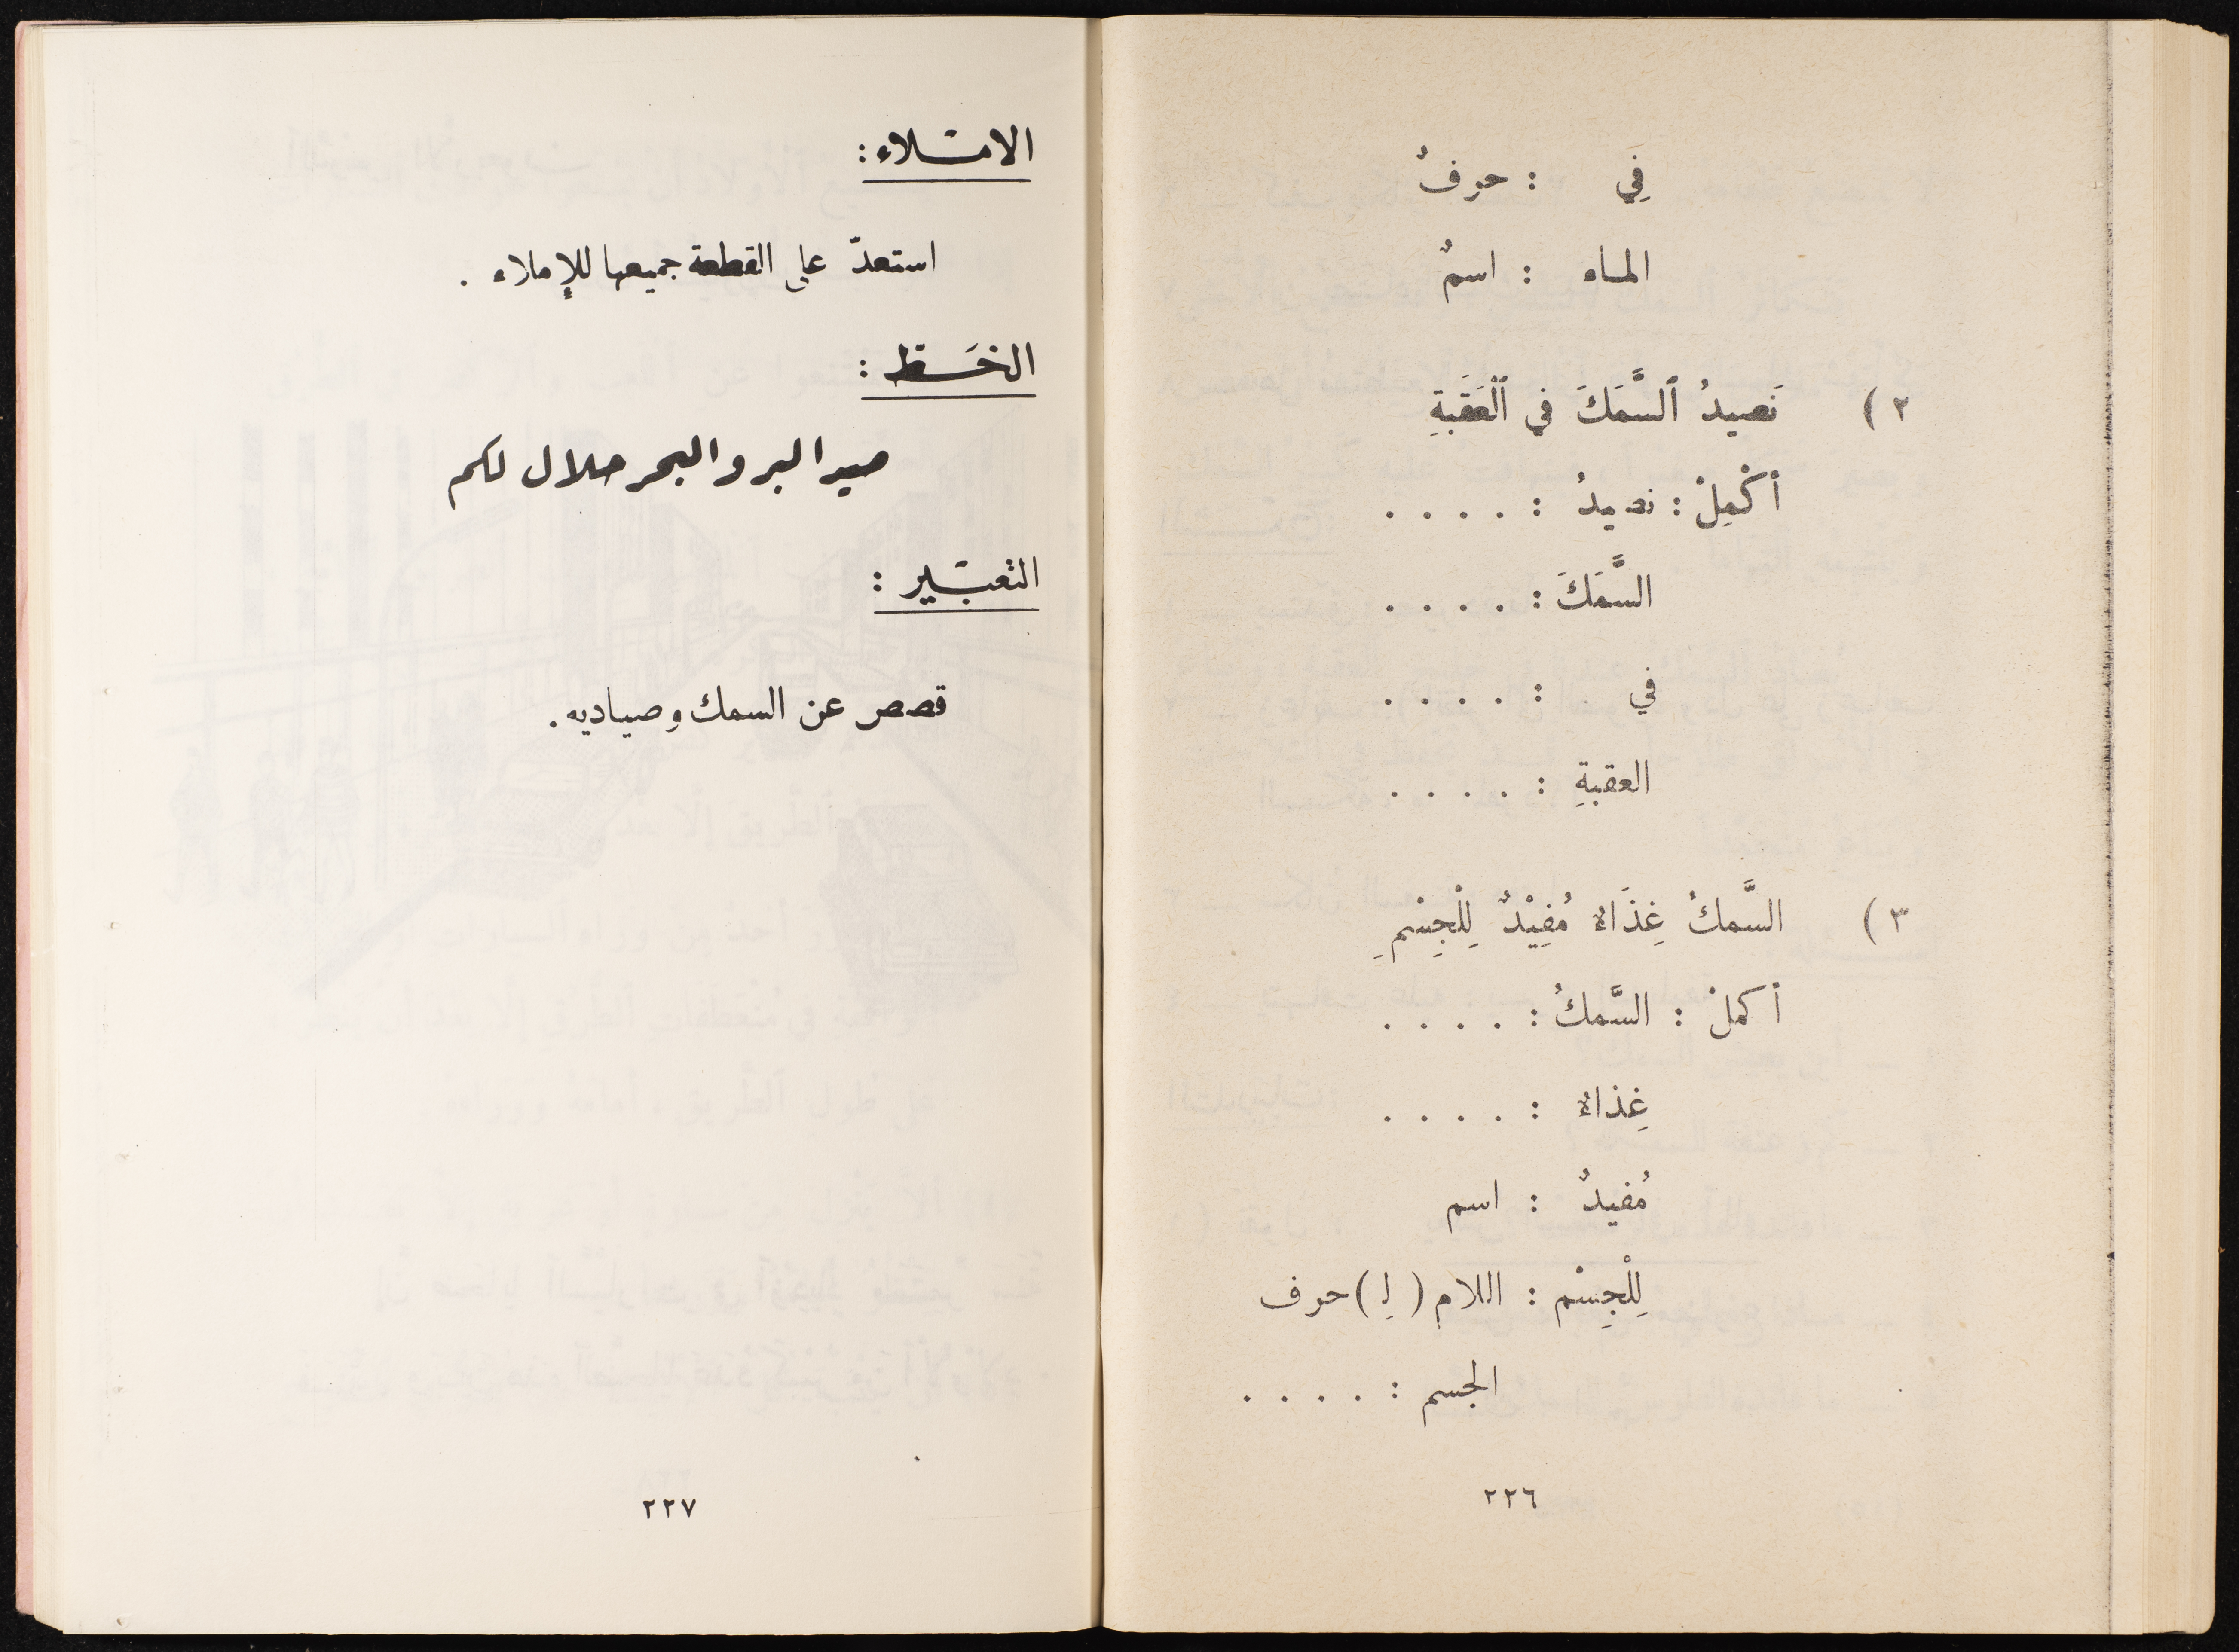 في : حرفٌ
الماء : اسمٌ
٢) نَصيدُ ٱلسَّمَكَ في ٱلْعَقَبَةِ
أكْمِلْ : نصيدُ : . . . .
السَّمَكَ : . . . .
في : . . . .
العقبةِ : . . . .
٣) السَّمكُ غِذَاءٌ مُفِيْدٌ لِلْجِسْمِ
أكملْ : السَّمكُ : . . . .
غِذاءٌ : . . . .
مُفيدٌ : اسم
لِلْجِسْم : اللام (لِ) حرف
الجسم : . . . .
٢٢٦
الامـلاء :
استعدّ على القطعة جميعها للإملاء .
الخَـط :
صيد البر والبحر حلال لكم
التعبـير :
قصص عن السمك وصياديه .
٢٢٧